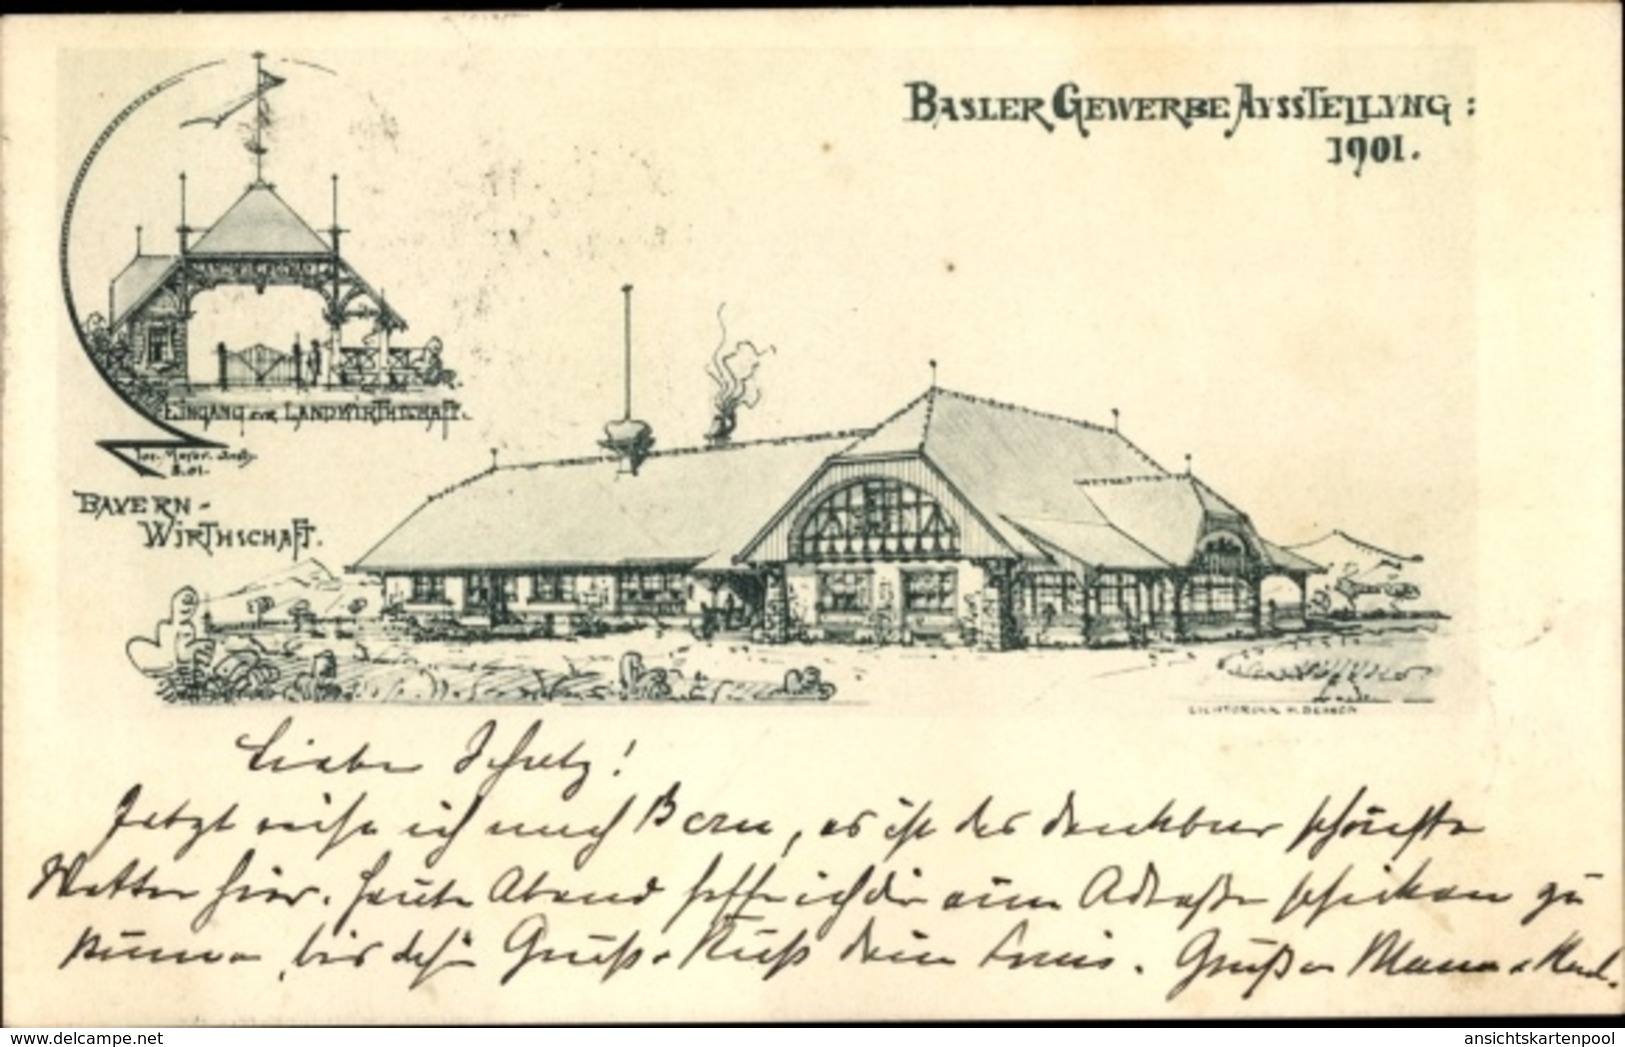 BASLER GEWERBE AVSSTELLVNG :
1901.
EINGANG ZUR LANDWIRTHSCHAFT.
8.01.
BAVERN-
WIRTHSCHAFT.
LICHTDRUCK H. BESSON
Lieber Schatz!
Jetzt reise ich nach Bern, es ist das denkbar schönste
Wetter hier. Heute Abend hoffe ich dir eine Adresse schicken zu
können, bis dahin Gruß & Kuß dein Louis. Grüße Mama &
delcampe.net
ansichtskartenpool